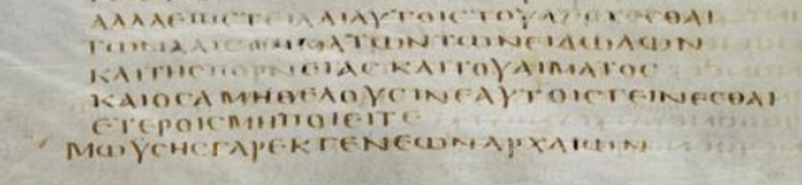 ΑΛΛΑΕΠΙϹΤΕΙΛΑΙΑΥΤΟΙϹΤΟΥΑΠΕΧΕϹΘΑΙ
ΤΩΝΑΛΙϹΓΗΜΑΤΩΝΤΩΝΕΙΔΩΛΩΝ
ΚΑΙΤΗϹΠΟΡΝΕΙΑϹΚΑΙΤΟΥΑΙΜΑΤΟϹ
ΚΑΙΟϹΑΜΗΘΕΛΟΥϹΙΝΕΑΥΤΟΙϹΓΕΙΝΕϹΘΑΙ
ΕΤΕΡΟΙϹΜΗΠΟΙΕΙΤΕ
ΜΩΫϹΗϹΓΑΡΕΚΓΕΝΕΩΝΑΡΧΑΙΩΝ